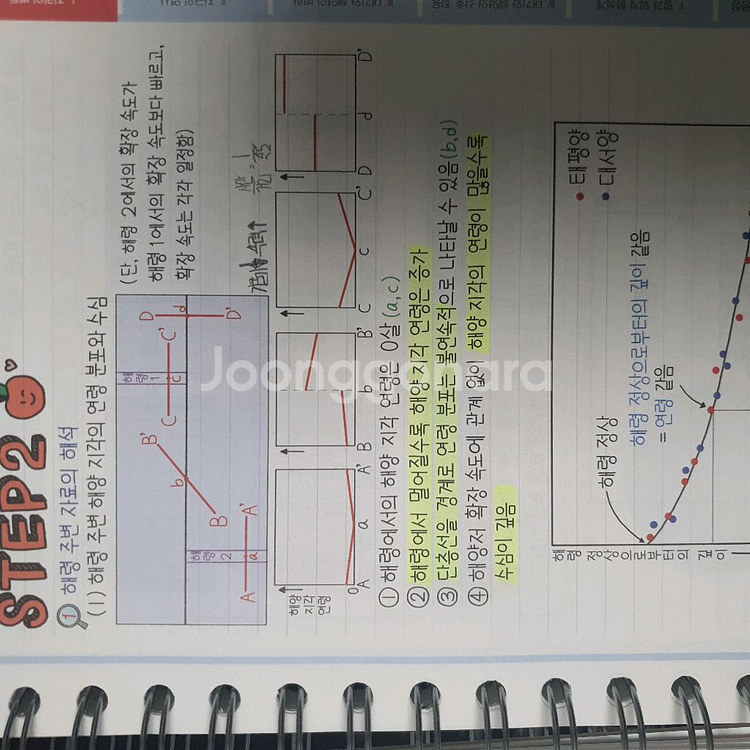 STEP2
1 해령 주변 자료의 해석
(1) 해령 주변 해양 지각의 연령 분포와 수심
(단, 해령 2에서의 확장 속도가
해령 1에서의 확장 속도보다 빠르고,
확장 속도는 각각 일정함)
해령 2
해령 1
A a A'
B b B'
C c C'
D d D'
해양
지각
연령
0
A a A'
B b B'
C c C'
D d D'
① 해령에서의 해양 지각 연령은 0살 (a,c)
② 해령에서 멀어질수록 해양 지각 연령은 증가
③ 단층선을 경계로 연령 분포는 불연속적으로 나타날 수 있음(b,d)
④ 해양저 확장 속도에 관계 없이 해양 지각의 연령이 많을수록
수심이 깊음
해령 정상으로부터의 깊이
해령 정상
해령 정상으로부터의 깊이 같음
= 연령 같음
태평양
대서양
Joonggonara